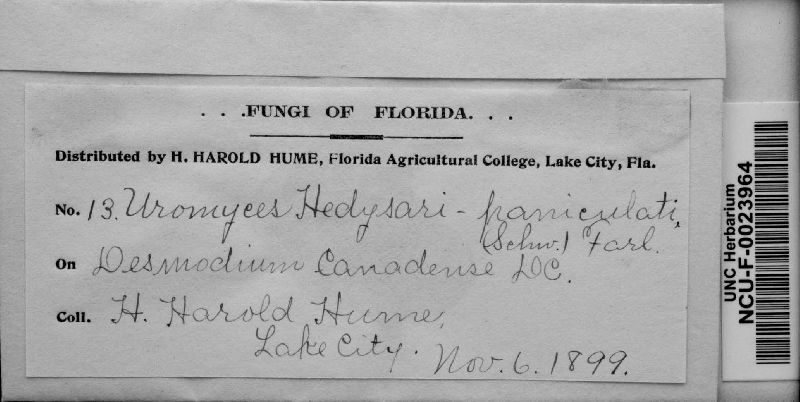 . . .FUNGI OF FLORIDA. . .
Distributed by H. HAROLD HUME, Florida Agricultural College, Lake City, Fla.
No. 13. Uromyces Hedysari - paniculati,
(Schw.) Farl.
On Desmodium Canadense DC.
Coll. H. Harold Hume,
Lake City. Nov. 6. 1899.
UNC Herbarium
NCU-F-0023964